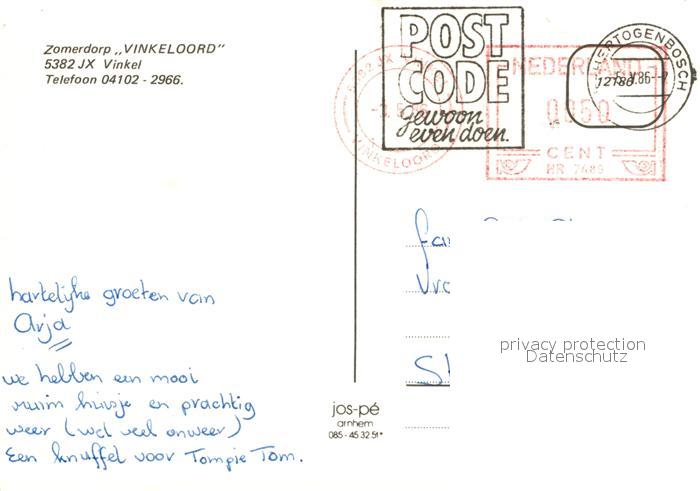 Zomerdorp „VINKELOORD"
5382 JX Vinkel
Telefoon 04102 - 2966.
POST
CODE
gewoon
even doen.
5382 JX
VINKELOORD
NEDERLAND
0050
CENT
HERTOGENBOSCH
hartelijke groeten van
Arja
we hebben een mooi
ruim huisje en prachtig
weer (wel veel onweer)
Een knuffel voor Tompie Tom.
privacy protection
Datenschutz
jos-pé
arnhem
085 - 45 32 51*